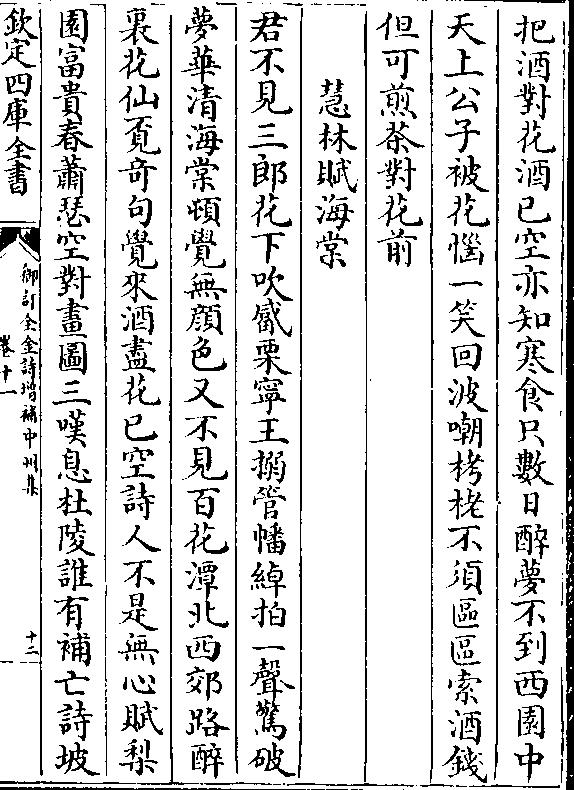 把酒對花酒已空亦知寒食只數日醉夢不到西園中
天上公子被花惱一笑回波嘲栲栳不須區區索酒錢
但可煎茶對花前
慧林賦海棠
君不見三郎花下吹觱栗寜王搦管幡綽拍一聲驚破
夢華清海棠頓覺無顔色又不見百花潭北西郊路醉
裏花仙覔奇句覺來酒盡花已空詩人不是無心賦梨
園富貴春蕭瑟空對畫圖三嘆息杜陵誰有補亡詩坡
欽定四庫全書
御訂全金詩增補中州集
卷十一
十二